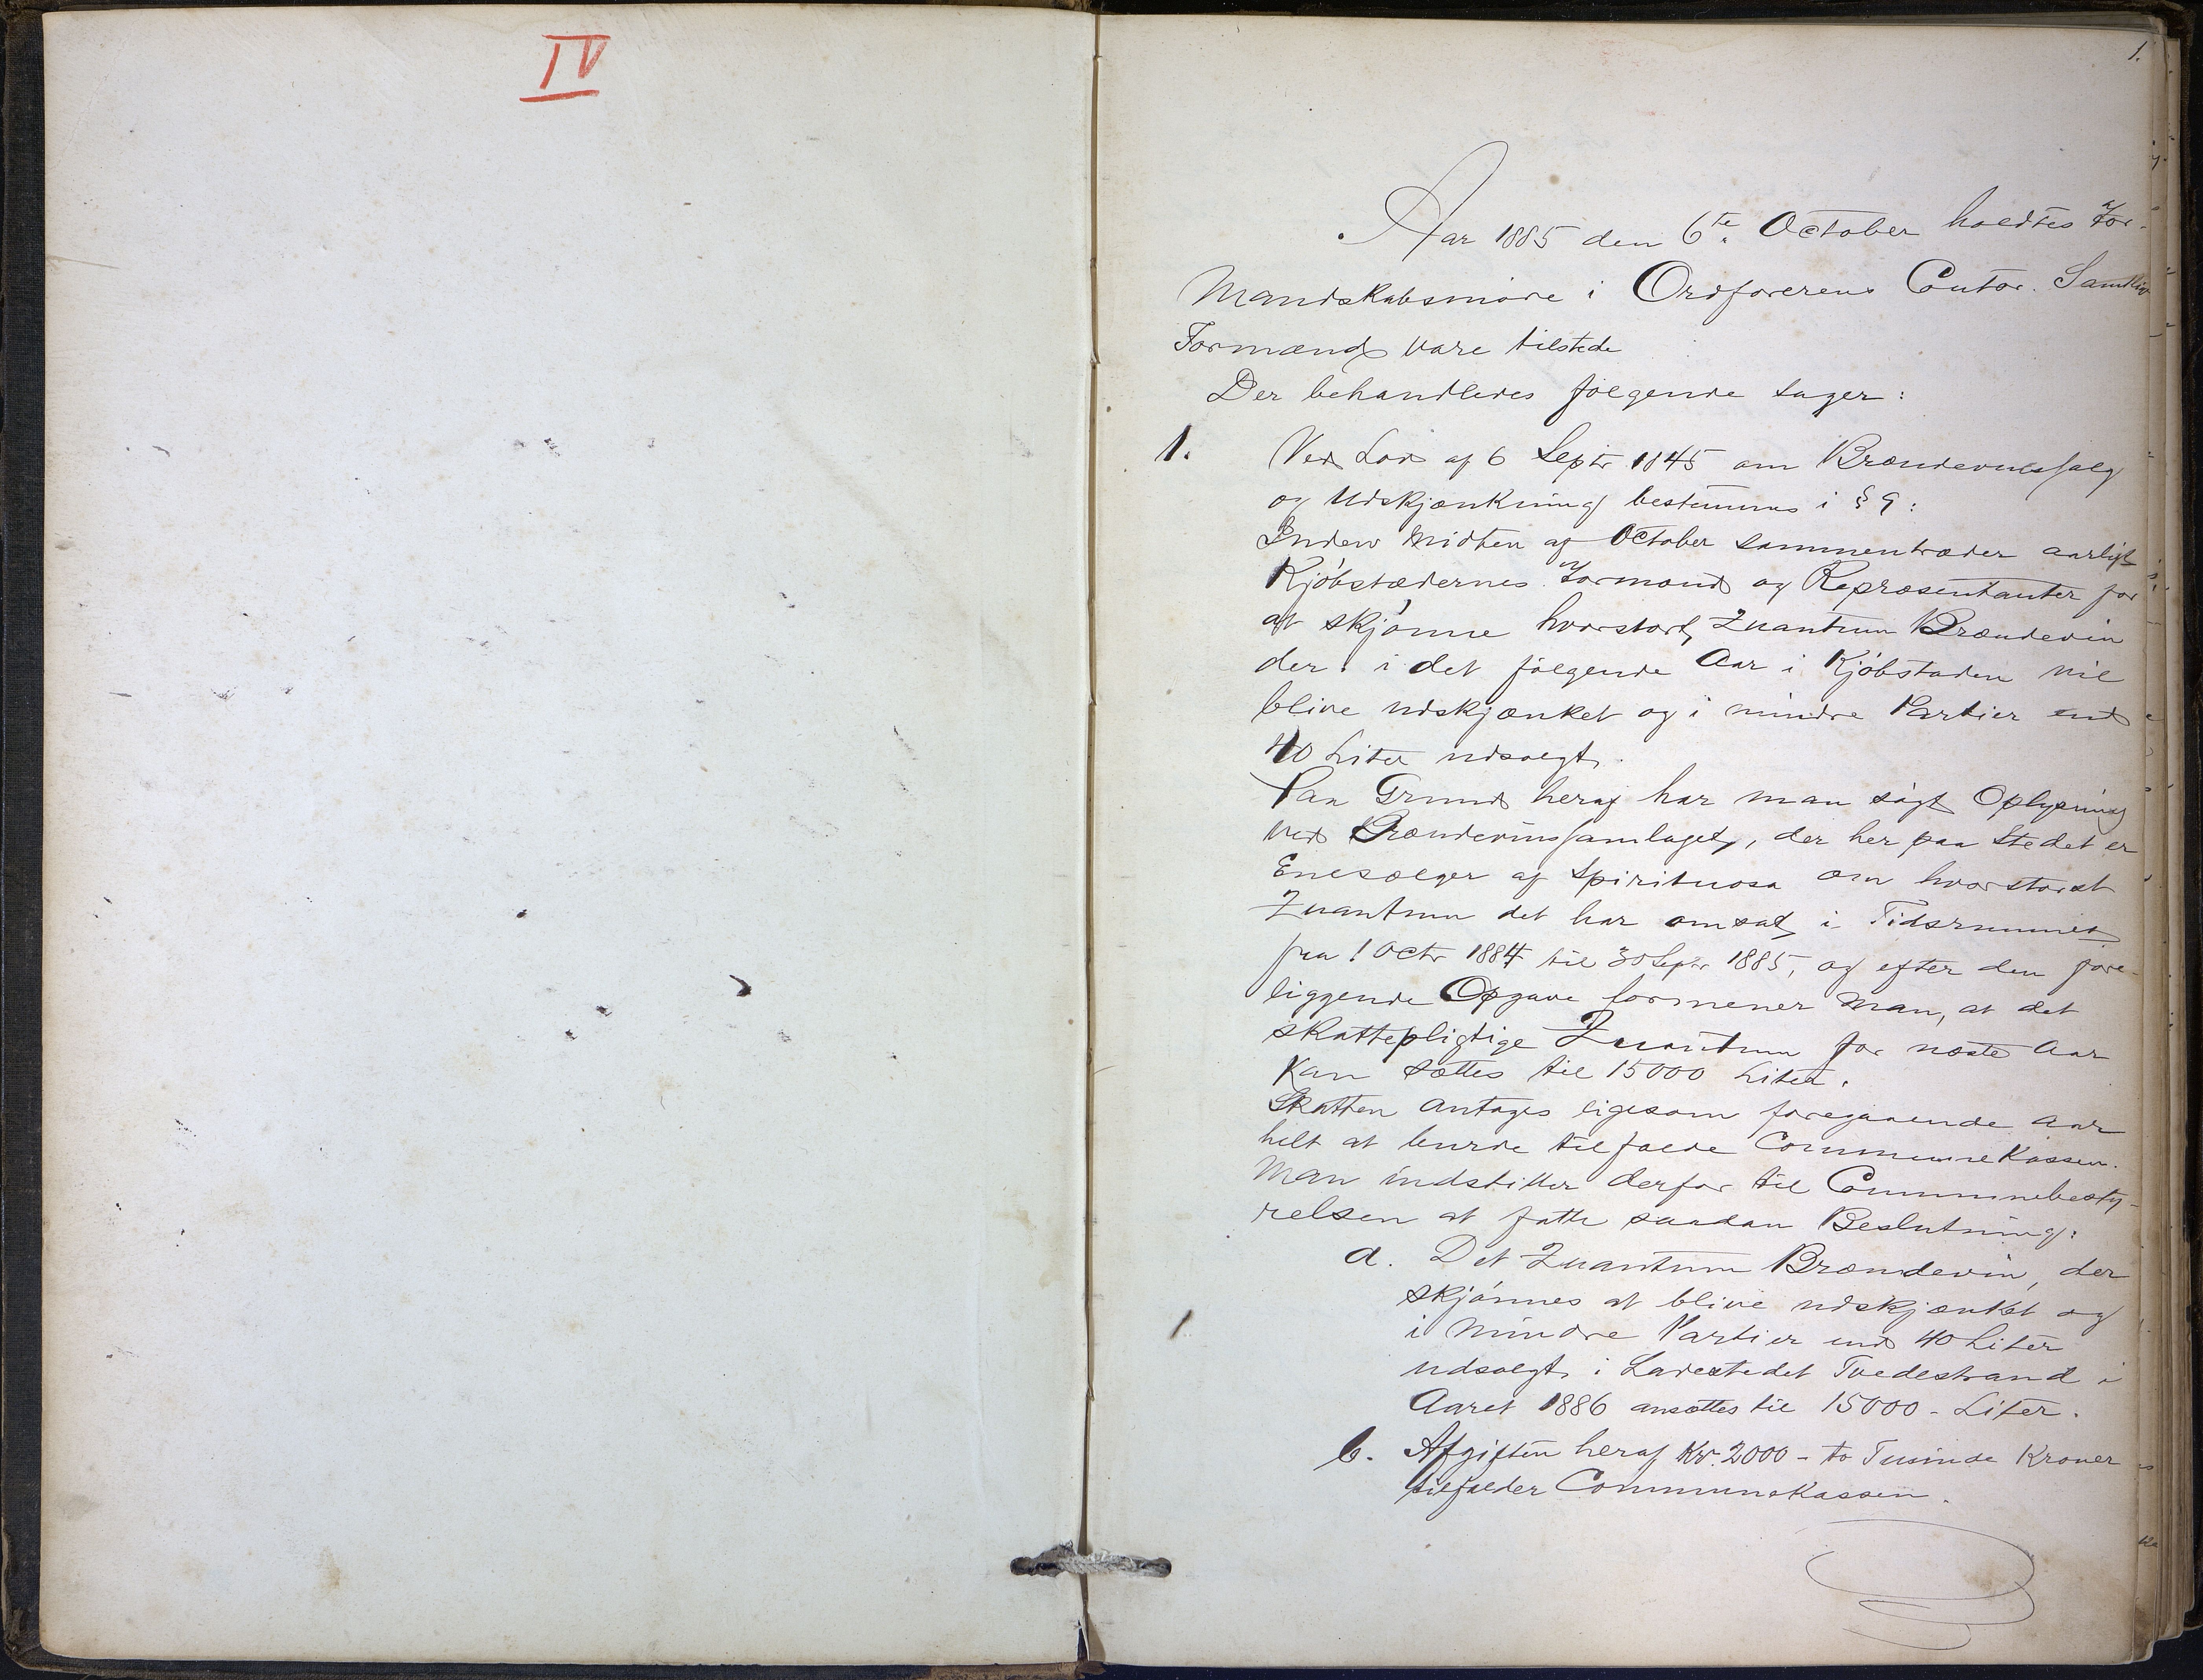 IV
1.
Aar 1885 den 6te October holdtes For-
mandskabsmöde i Ordförerens Contor. Samtlige
Formænd vare tilstede
Der behandledes fölgende sager:
1. Ved Lov af 6 Septr 1845 om Brændevinssalg
og Udskjænkning bestemmes i § 9:
Inden Midten af October sammentræder aarligt
Kjöbstædernes Formænd og Repræsentanter for
at skjönne hvorstort Quantum Brændevin
der i det fölgende Aar i Kjöbstaden vil
blive udskjænket og i mindre Partier end
40 Liter udsolgt.
Paa Grund heraf har man sögt Oplysning
ved Brændevinssamlaget, der her paa Stedet er
Enesælger af Spirituosa om hvorstorst
Quantum det har omsat i Tidsrummet
fra 1 Octr 1884 til 30 Septr 1885, og efter den fore-
liggende Opgave formener man, at det
skattepligtige Quantum for næste Aar
kan sættes til 15000 Liter.
Skatten antages ligesom foregaaende Aar
helt at burde tilfalde Communekassen.
Man indstiller derfor til Communebesty-
relsen at fatte saadan Beslutning:
a. Det Quantum Brændevin, der
skjönnes at blive udskjænket og
i mindre Partier end 40 Liter
udsolgt i Ladestedet Tvedestrand i
Aaret 1886 ansættes til 15000 - Liter.
b. Afgiften heraf Kr. 2000 - to Tusinde Kroner
tilfalder Communekassen.